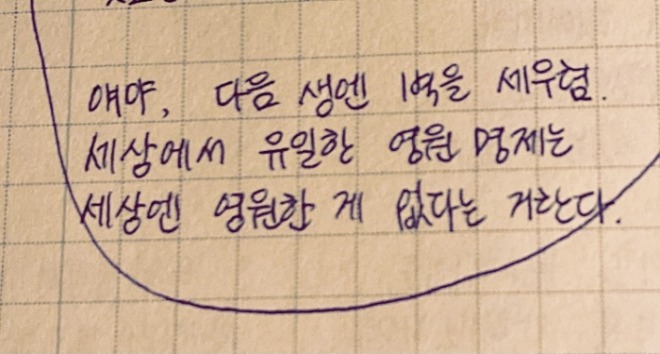 얘야, 다음 생엔 세우렴.
세상에서 유일한 영원 명제는
세상엔 영원한 게 없다는 거란다.